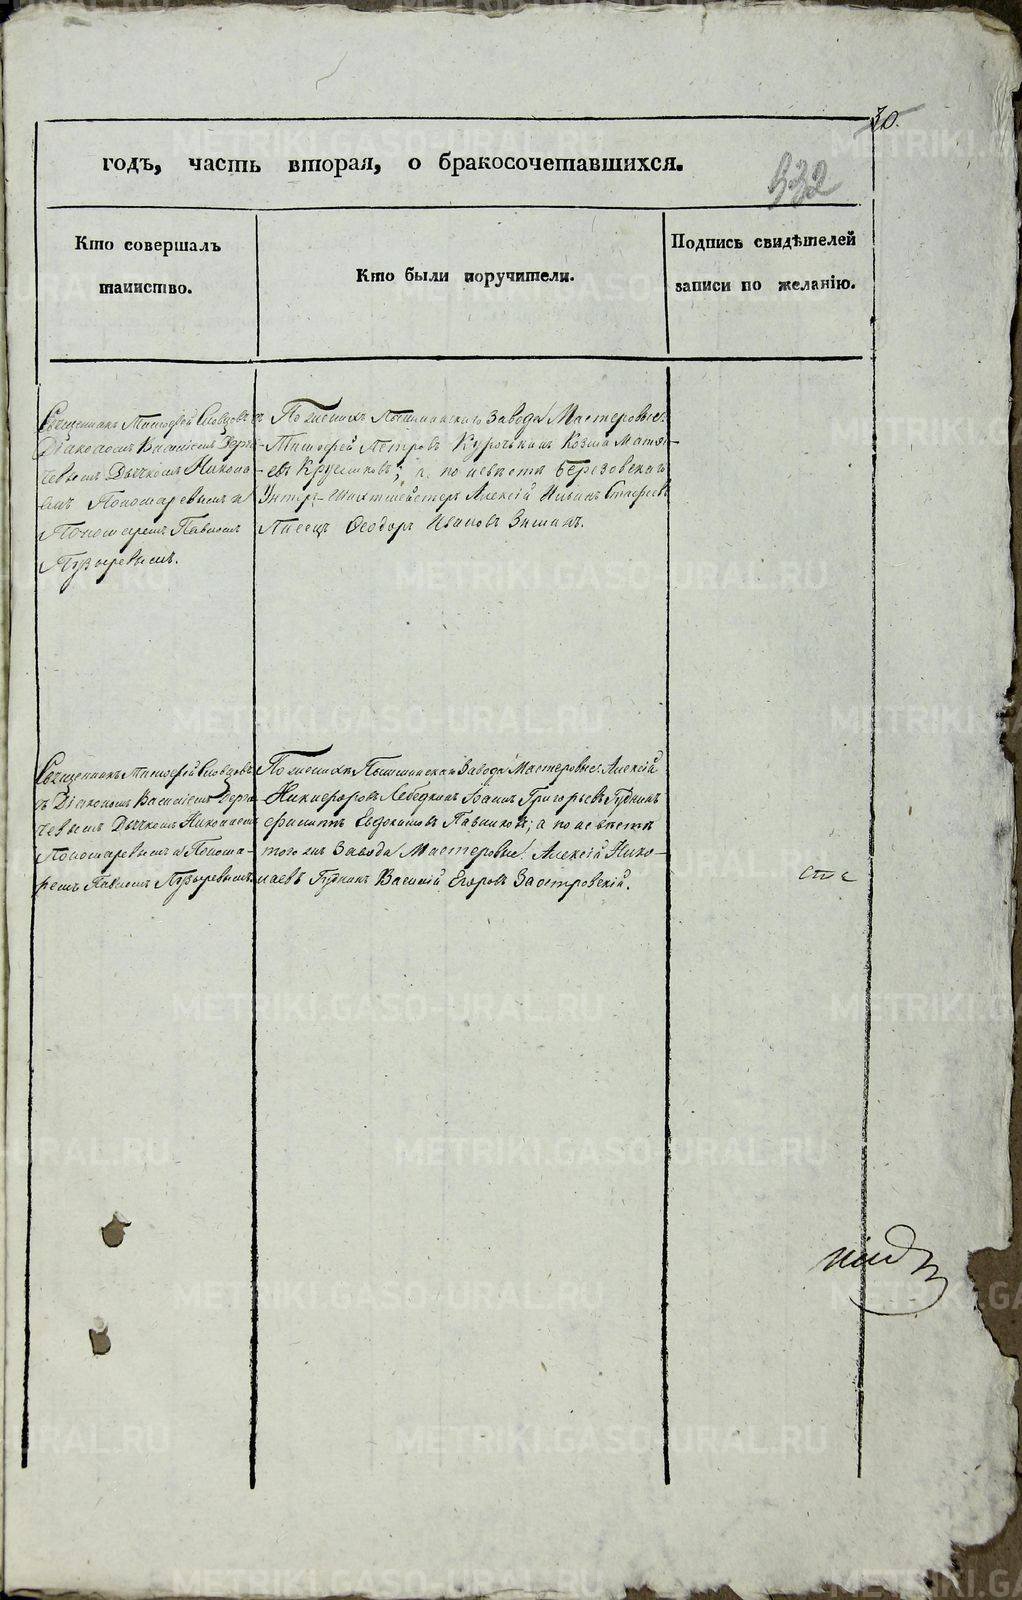 30.
годъ, часть вторая, о бракосочетавшихся.
532
Кто совершалъ
таинство.
Кто были поручители.
Подпись свидѣтелей
записи по желанію.
Священникъ Тимофей Словцовъ съ
Діакономъ Василіемъ
чевымъ Дьячкомъ Никола
емъ Пономаревымъ и
Пономаремъ Павломъ
Пузыревымъ.
По женихѣ Пышминскаго Завода Мастеровые:
Тимофей Петровъ Курочкинъ Козма Матѳе-
евъ Кругликовъ; а по невѣстѣ Березовскаго
Унтер-шихтмейстеръ Алексѣй Ильинъ
Писецъ Ѳеодоръ Ивановъ Зиминъ.
Священникъ Тимофей Словцовъ
съ Діакономъ Василіемъ
чевымъ Дьячкомъ Николаемъ
Пономаревымъ и Понома-
ремъ Павломъ Пузыревымъ.
По женихѣ Пышминскаго Завода Мастеровые: Алексѣй
Никифоровъ Лебедкинъ Иванъ Григорьевъ Гудинъ
Евдокимовъ; а по невѣстѣ
того жъ Завода Мастеровые: Алексѣй Нико-
лаевъ Василій Егоровъ Заостровскій.
METRIKI.GASO-URAL.RU